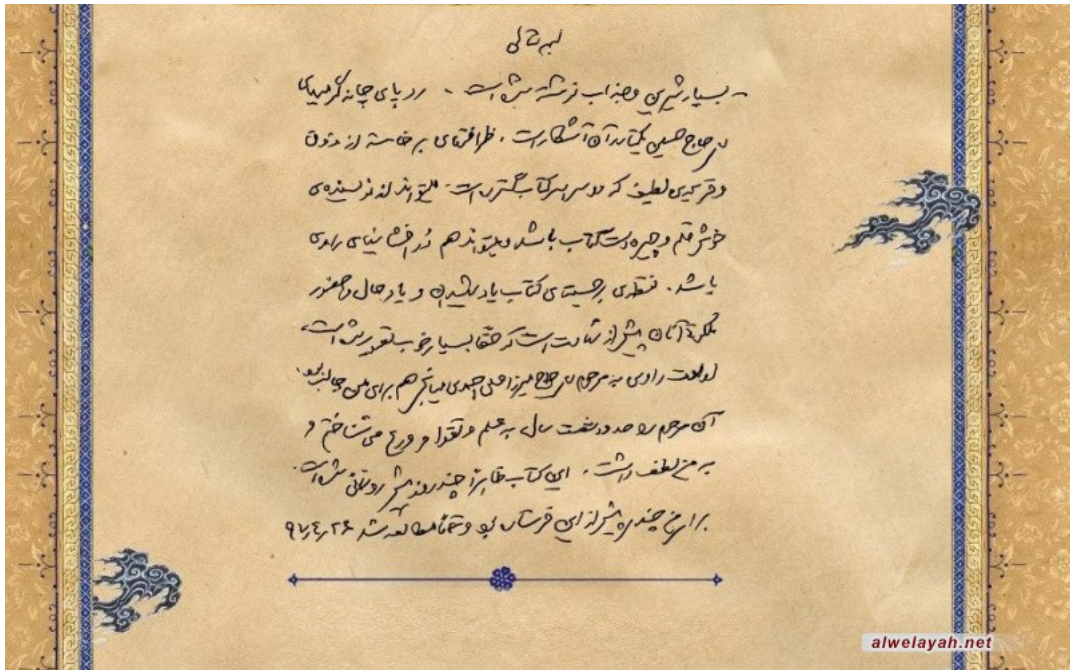 بسمه تعالی
ـ بسیار شیرین و جذاب نوشته شده است ـ ردپای چانه گرمیهای
حاج حسین یکتا در آن آشکار است ، ظرافتهای برخاسته از ذوق
و قریحه‌ی لطیف که در سراسر کتاب گسترده است، میتواند از نویسنده‌ی
خوش قلم و چیره دست کتاب باشد و میتواند هم دُرافشانیهای راوی
باشد . نقطه‌ی برجسته‌ی کتاب یاد شهیدان و یاد حال و حضور
ملکوتی آنان پیش از شهادت است که حقاً بسیار خوب تصویر شده است،
ارادت راوی به مرحوم حاج میرزا علی احمدی میانجی هم برای من جالب بود.
آن مرحوم را حدود شصت سال به علم و تقوا و ورع می شناختم و
به من لطف داشت . این کتاب ظاهراً چند روز پیش رونمائی شده است.
برای من چندی پیش از این فرستاده بودند و تماماً مطالعه شد ۹۷٫۴٫۲۶
alwelayah.net